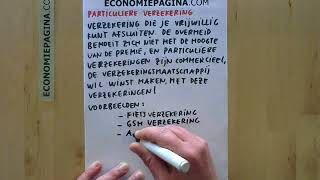 ECONOMIEPAGINA.COM
ECONOMIEPAGINA.COM
PARTICULIERE VERZEKERING
VERZEKERING DIE JE VRIJWILLIG
KUNT AFSLUITEN. DE OVERHEID
BEMOEIT ZICH NIET MET DE HOOGTE
VAN DE PREMIE, EN PARTICULIERE
VERZEKERINGEN ZIJN COMMERCIEEL,
DE VERZEKERINGSMAATSCHAPPIJ
WIL WINST MAKEN, MET DEZE
VERZEKERINGEN!
VOORBEELDEN:
- FIETSVERZEKERING
- GSM VERZEKERING
- A